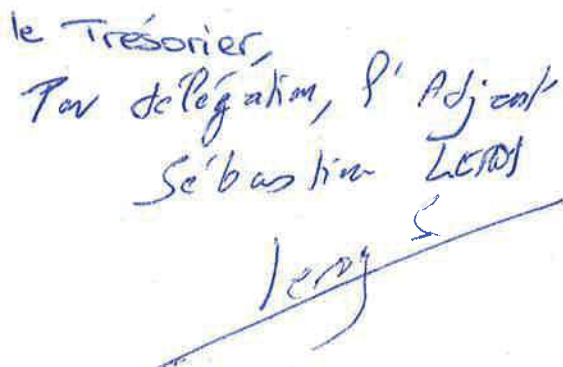 le Trésorier,
Par délégation, l'Adjoint
Sébastien LEROY
Leroy